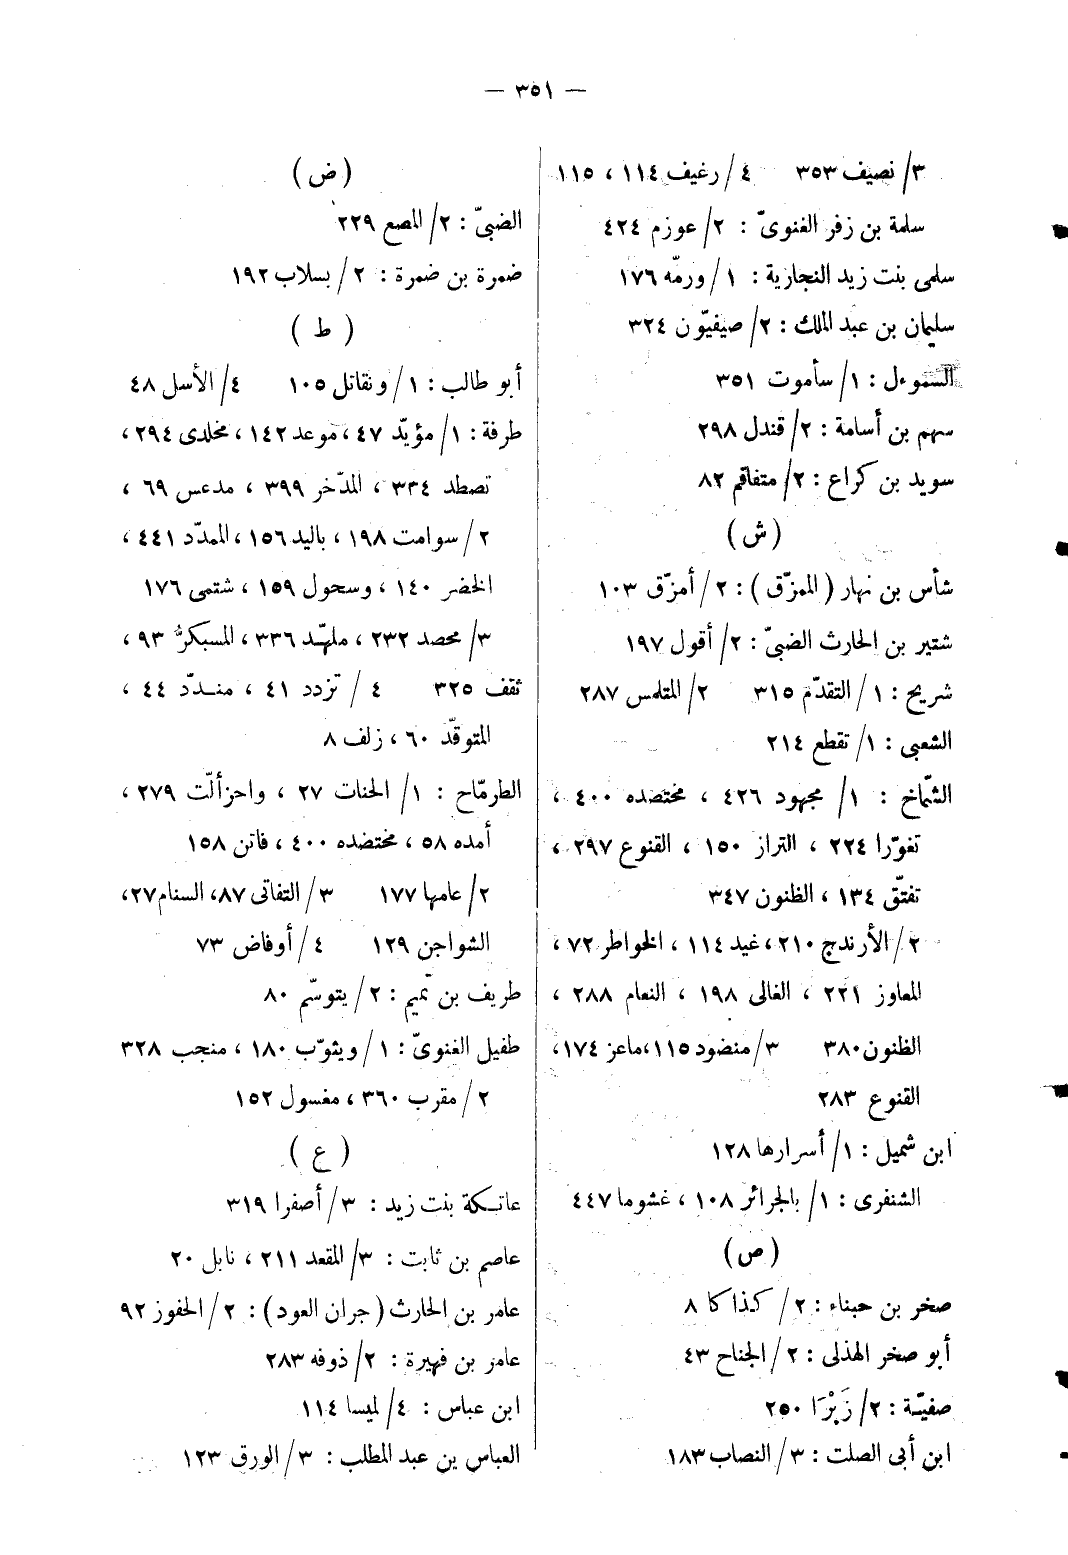 — ٣٥١ —
٣/ نصيف ٣٥٣ ٤/ رغيف ١١٤ ، ١١٥
سلمة بن زفر الغنويّ : ٢/ عوزم ٤٢٤
سلمى بنت زيد النجارية : ١/ ورمّه ١٧٦
سليمان بن عبد الملك : ٢/ صيفيّون ٣٢٤
السموءل : ١/ سأموت ٣٥١
سهم بن أسامة : ٢/ قندل ٢٩٨
سويد بن كراع : ٢/ متفاقم ٨٢
( ش )
شأس بن نهار ( الممزّق ) : ٢/ أمزّق ١٠٣
شتير بن الحارث الضبيّ : ٢/ أقول ١٩٧
شريح : ١/ التقدّم ٣١٥ ٢/ المتلمس ٢٨٧
الشعبى : ١/ تقطع ٢١٤
الشمّاخ : ١/ مجهود ٤٢٦ ، مختضده ٤٠٠ ،
تغوّرا ٢٢٤ ، التراز ١٥٠ ، القنوع ٢٩٧ ،
تفتّق ١٣٤ ، الظنون ٣٤٧
٢/ الأرندج ٢١٠ ، غيد ١١٤ ، الخواطر ٧٢ ،
المعاوز ٢٢١ ، الغالى ١٩٨ ، النعام ٢٨٨ ،
الظنون ٣٨٠ ٣/ منضود ١١٥ ، ماعز ١٧٤ ،
القنوع ٢٨٣
ابن شميل : ١/ أسرارها ١٢٨
الشنفرى : ١/ بالجرائر ١٠٨ ، غشوما ٤٤٧
( ص )
صخر بن حبناء : ٢/ كذاكا ٨
أبو صخر الهذلى : ٢/ الجناح ٤٣
صفيّة : ٢/ زَبْرَا ٢٥٠
ابن أبى الصلت : ٣/ النصاب ١٨٣
( ض )
الضبيّ : ٢/ المصع ٢٢٩
ضمرة بن ضمرة : ٢/ بسلاب ١٩٢
( ط )
أبو طالب : ١/ ونقاتل ١٠٥ ٤/ الأسل ٤٨
طرفة : ١/ مؤيّد ٤٧ ، موعد ١٤٢ ، مخلدى ٢٩٤ ،
تصطد ٣٣٤ ، المدّخر ٣٩٩ ، مدعس ٦٩ ،
٢/ سوامت ١٩٨ ، باليد ١٥٦ ، الممدّد ٤٤١ ،
الخضر ١٤٠ ، وسحول ١٥٩ ، شتمى ١٧٦
٣/ محصد ٢٣٢ ، ملهّد ٣٣٦ ، المسبكرُّ ٩٣ ،
ثقف ٣٢٥ ٤/ تزدد ٤١ ، منددّ ٤٤ ،
المتوقّد ٦٠ ، زلف ٨
الطرمّاح : ١/ الحنات ٢٧ ، واحزألّت ٢٧٩ ،
أمده ٥٨ ، مختضده ٤٠٠ ، فاتن ١٥٨
٢/ عامها ١٧٧ ٣/ التفاتى ٨٧ ، السنام ٢٧ ،
الشواجن ١٢٩ ٤/ أوفاض ٧٣
طريف بن تميم : ٢/ يتوسّم ٨٠
طفيل الغنويّ : ١/ ويثوّب ١٨٠ ، منجب ٣٢٨
٢/ مقرب ٣٦٠ ، مغسول ١٥٢
( ع )
عاتكة بنت زيد : ٣/ أصفرا ٣١٩
عاصم بن ثابت : ٣/ المقعد ٢١١ ، نابل ٢٠
عامر بن الحارث ( جران العود ) : ٢/ الحفوز ٩٢
عامر بن فهيرة : ٢/ ذوقه ٢٨٣
ابن عباس : ٤/ لميسا ١١٤
العباس بن عبد المطلب : ٣/ الورق ١٢٣